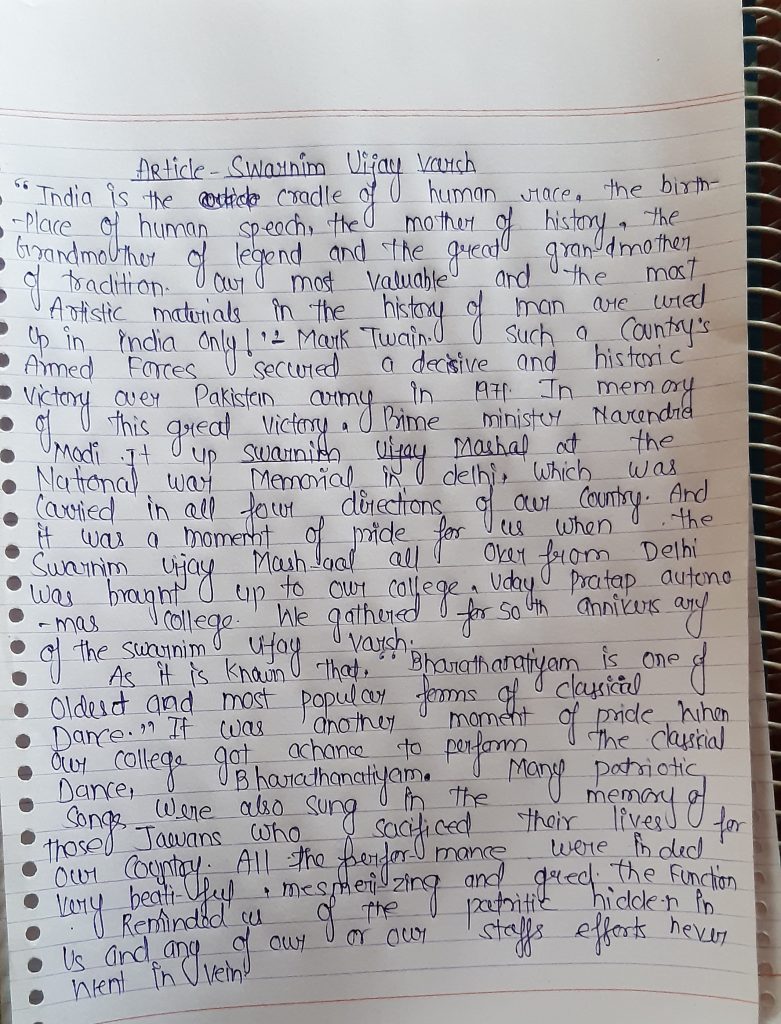 Article - Swarnim Vijay Varsh
"India is the cradle of human race, the birth-
-Place of human speech, the mother of history, the
Grandmother of legend and the great grandmother
of tradition. Our most valuable and the most
Artistic materials in the history of man are
Up in India only!" - Mark Twain. Such a Country's
Armed Forces secured a decisive and historic
Victory over Pakistan army in 1971. In memory
of this great Victory, Prime minister Narendra
Modi lit up swarnim vijay Mashal at the
National war Memorial in delhi, which was
Carried in all four directions of our Country. And
it was a moment of pride for us when the
Swarnim vijay Mashaal all over from Delhi
Was brought up to our college, Uday Pratap autono
-mas college. We gathered for 50th annikers ary
of the swarnim vijay varsh.
As it is known that, "Bharathanatiyam is one of
Oldest and most popular forms of classical
Dance." It was another moment of pride when
Our college got achance to perform the classical
Dance, Bharathanatiyam. Many patriotic
Songs were also sung in the memory of
those Jawans who sacificed their lives for
Our Country. All the perfor-mance were inded
Very beati-ful, mesmeri-zing and gred. the Function
Reminded us of the patritic hidden in
Us and any of our or our staffs efforts never
went in vein!